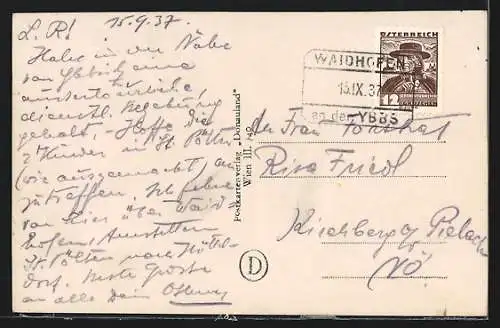 L. R! 15.9.37.
Habe in der Nähe
von Ybbsitz eine
dienstl. Begehung
gehabt, - Hoffe die
2 Kinder in St. Pölten
(wie ausgemacht) an-
zutreffen. Ich fahre
von hier über Waid
hofen Amstetten
St. Pölten nach Hüttel-
dorf. Beste Grüsse
an alle Dein
Postkartenverlag "Donauland"
Wien III. 40
D
ÖSTERREICH
12
WAIDHOFEN
15.IX.37
an der YBBS
Frau
Risa Friedl
Kirchberg a/ Pielach
NÖ.